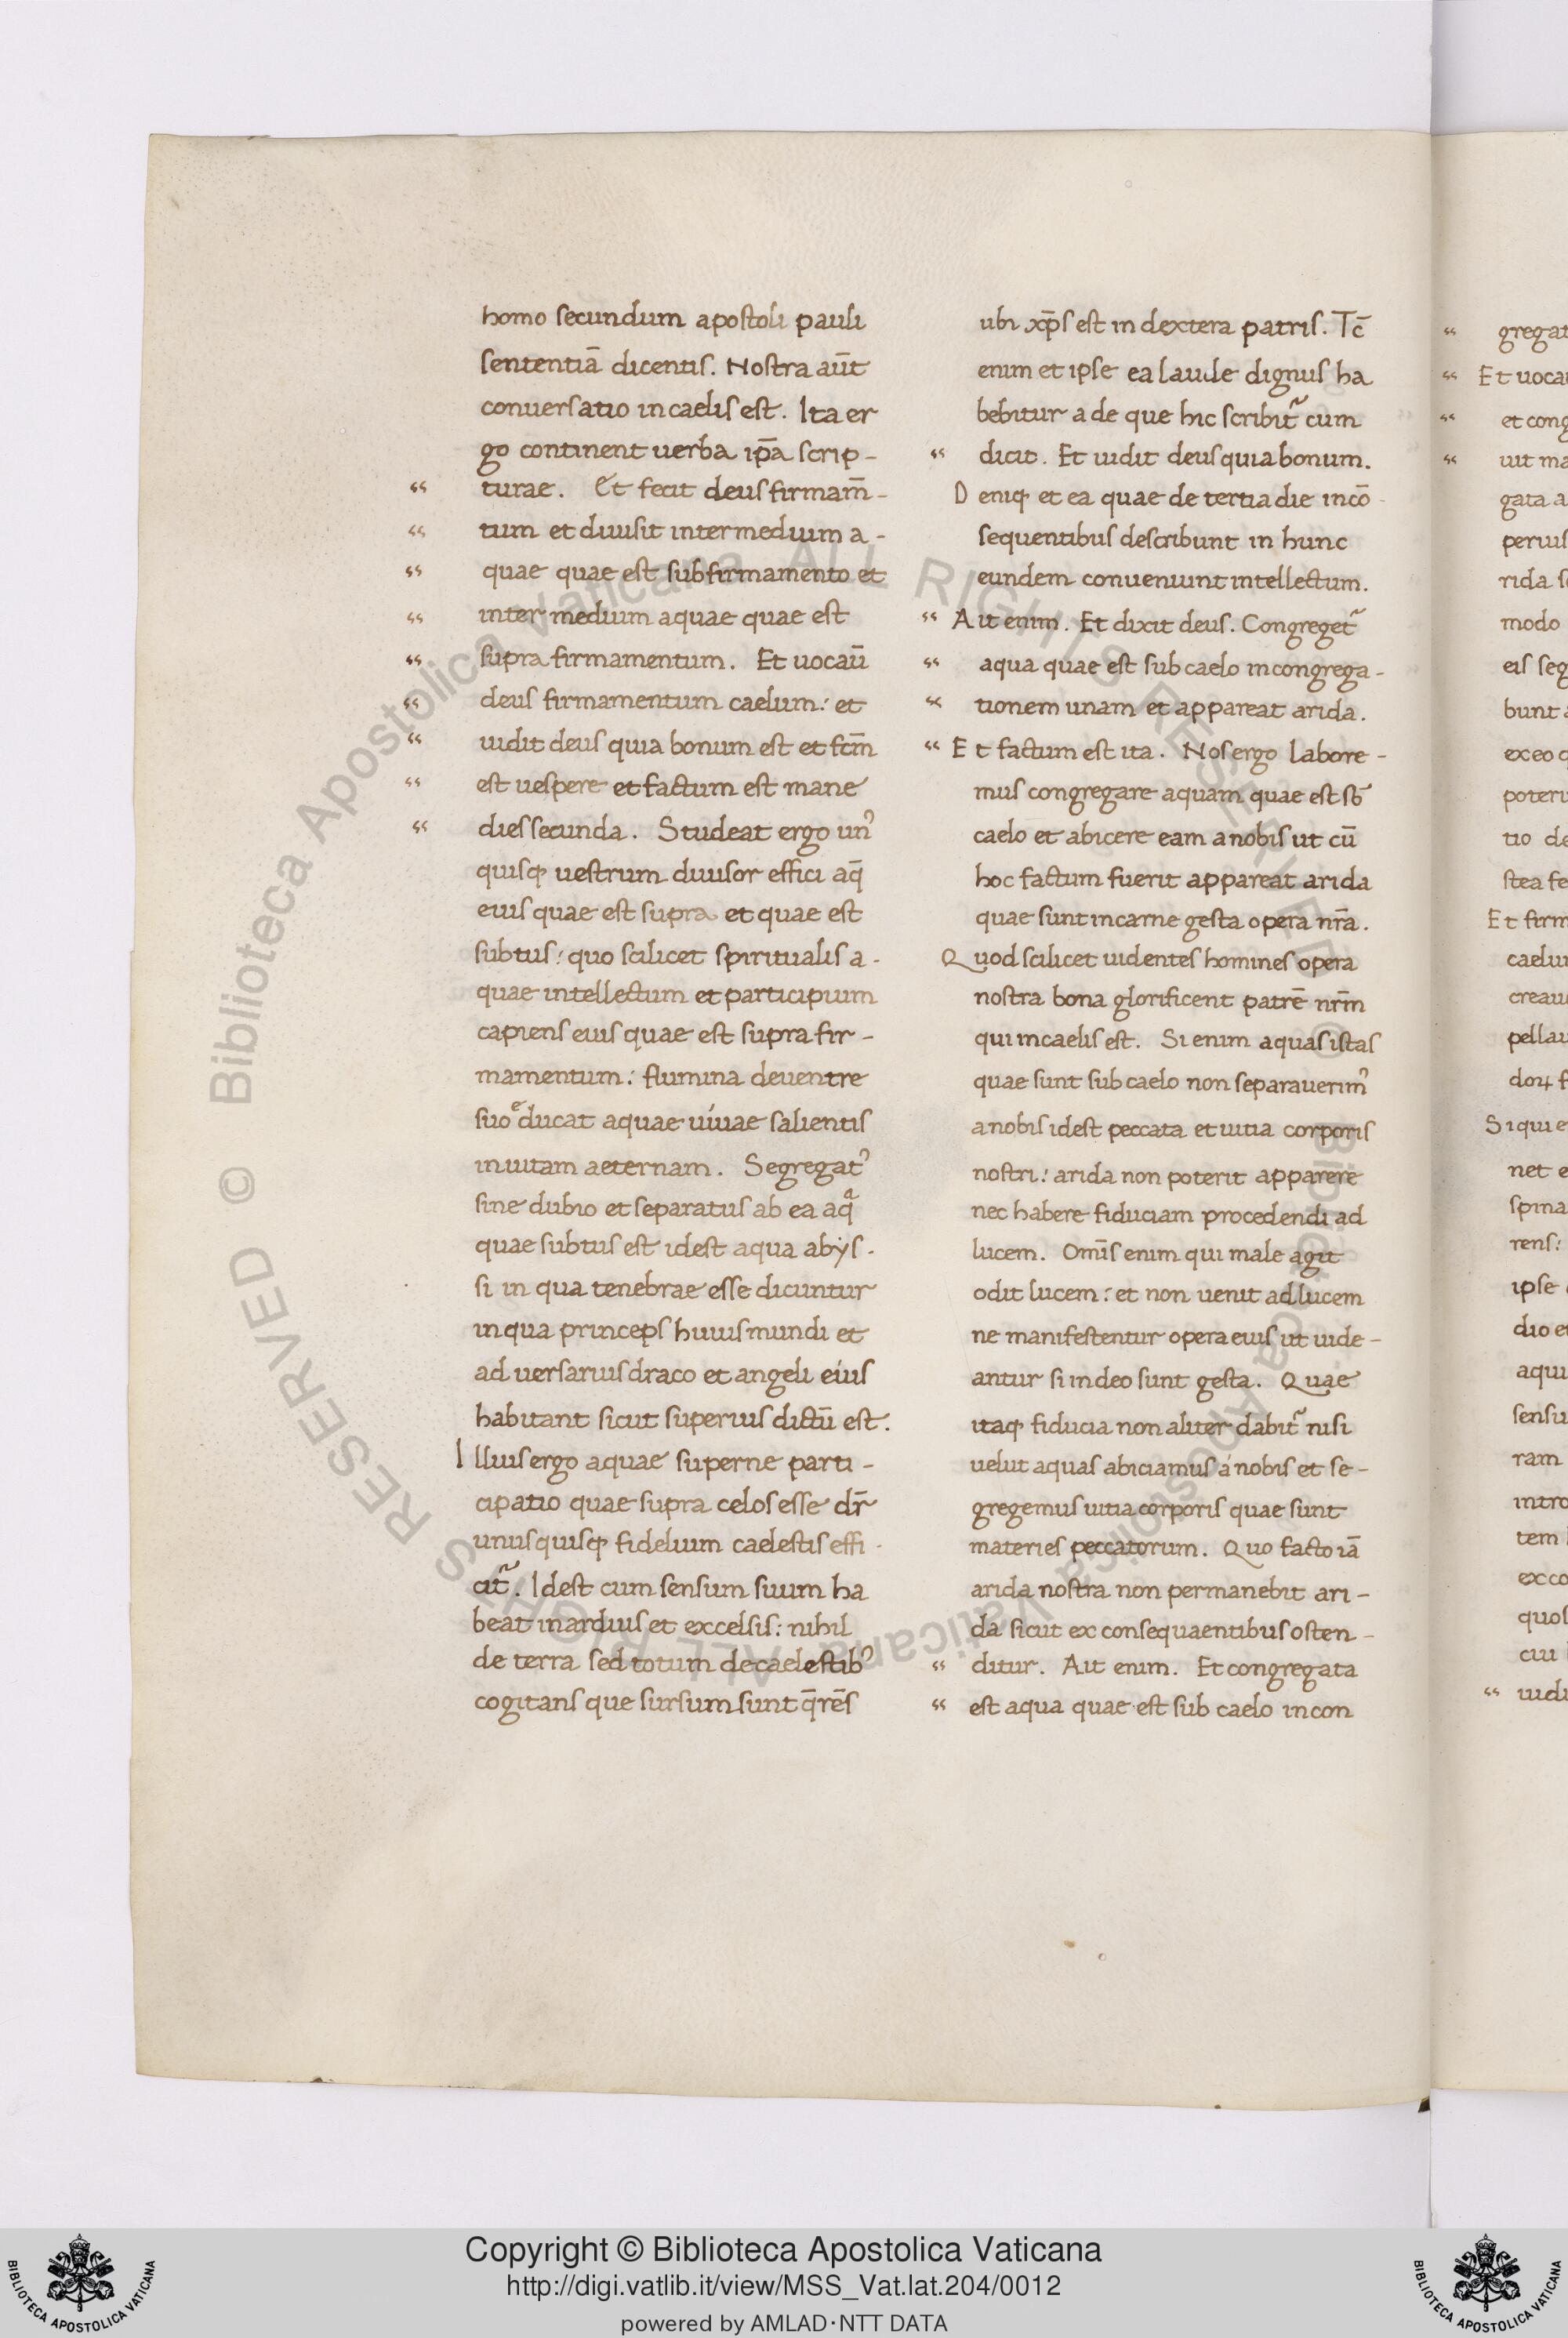 homo secundum apostoli pauli
sententiā dicentis. Nostra aūt
conuersatio in caelis est. Ita er
go continent uerba ip̄a scrip-
“ turae. Et fecit deus firmam̄-
“ tum et diuisit inter medium a-
“ quae quae est sub firmamento et
“ inter medium aquae quae est
“ supra firmamentum. Et uocau̅
“ deus firmamentum caelum: et
“ uidit deus quia bonum est et fcm̄
“ est uespere et factum est mane
“ dies secunda. Studeat ergo un᾽
quisq; uestrum diuisor effici aq̄
eius quae est supra et quae est
subtus: quo scilicet spiritualis a-
quae intellectum et participium
capiens eius quae est supra fir-
mamentum: flumina de uentre
suo educat aquae uiuae salientis
in uitam aeternam. Segregat᾽
sine dubio et separatus ab ea aqa
quae subtus est idest aqua abys-
si in qua tenebrae esse dicuntur
in qua princeps huius mundi et
aduersarius draco et angeli eius
habitant sicut superius dictū est.
Illius ergo aquae superne parti-
cipatio quae supra celos esse dr̄
unusquisq; fidelium caelestis effi-
cit᾽. Idest cum sensum suum ha
beat in arduis et excelsis: nihil
de terra sed totum de caelestib᾽
cogitans que sursum sunt q̄rēs
ubi xp̄s est in dextera patris. Tc̄
enim et ipse ea laude dignus ha
bebitur a de que hic scribit᾽ cum
“ dicit. Et uidit deus quia bonum.
Deniq; et ea quae de tertia die in cō-
sequentibus describunt in hunc
eundem conueniunt intellectum.
“ Ait enim. Et dixit deus. Congreget᾽
“ aqua quae est sub caelo in congrega-
“ tionem unam et appareat arida.
“ Et factum est ita. Nos ergo labore-
mus congregare aquam quae est sb̄
caelo et abicere eam a nobis ut cū
hoc factum fuerit appareat arida
quae sunt in carne gesta opera nr̄a.
Quod scilicet uidentes homines opera
nostra bona glorificent patrē nrm̄
qui in caelis est. Si enim aquas istas
quae sunt sub caelo non separauerim᾽
a nobis idest peccata et uitia corporis
nostri: arida non poterit apparere
nec habere fiduciam procedendi ad
lucem. Omīs enim qui male agit
odit lucem: et non uenit ad lucem
ne manifestentur opera eius ut uide-
antur si in deo sunt gesta. Quae
itaq; fiducia non aliter dabit᾽ nisi
uelut aquas abiciamus á nobis et se-
gregemus uitia corporis quae sunt
materies peccatorum. Quo facto iā
arida nostra non permanebit ari-
da sicut ex consequaentibus osten-
“ ditur. Ait enim. Et congregata
“ est aqua quae est sub caelo in con
“ gregat
“ Et uocau
“ et cong
“ uit ma
gata a
perius
rida s
modo
eis seg
bunt a
ex eo q
poteri
tio de
stea fe
Et firm
caelu
creau
pellau
doꝝ f
Si qui e
net e
spina
rens:
ipse
dio et
aqui
sensu
ram
intro
tem
ex co
quos
cui
“ uidi
© Biblioteca Apostolica Vaticana ALL RIGHTS RESERVED
© Biblioteca Apostolica Vaticana ALL RIGHTS RESERVED
Copyright © Biblioteca Apostolica Vaticana
http://digi.vatlib.it/view/MSS_Vat.lat.204/0012
powered by AMLAD·NTT DATA
BIBLIOTECA APOSTOLICA VATICANA
BIBLIOTECA APOSTOLICA VATICANA